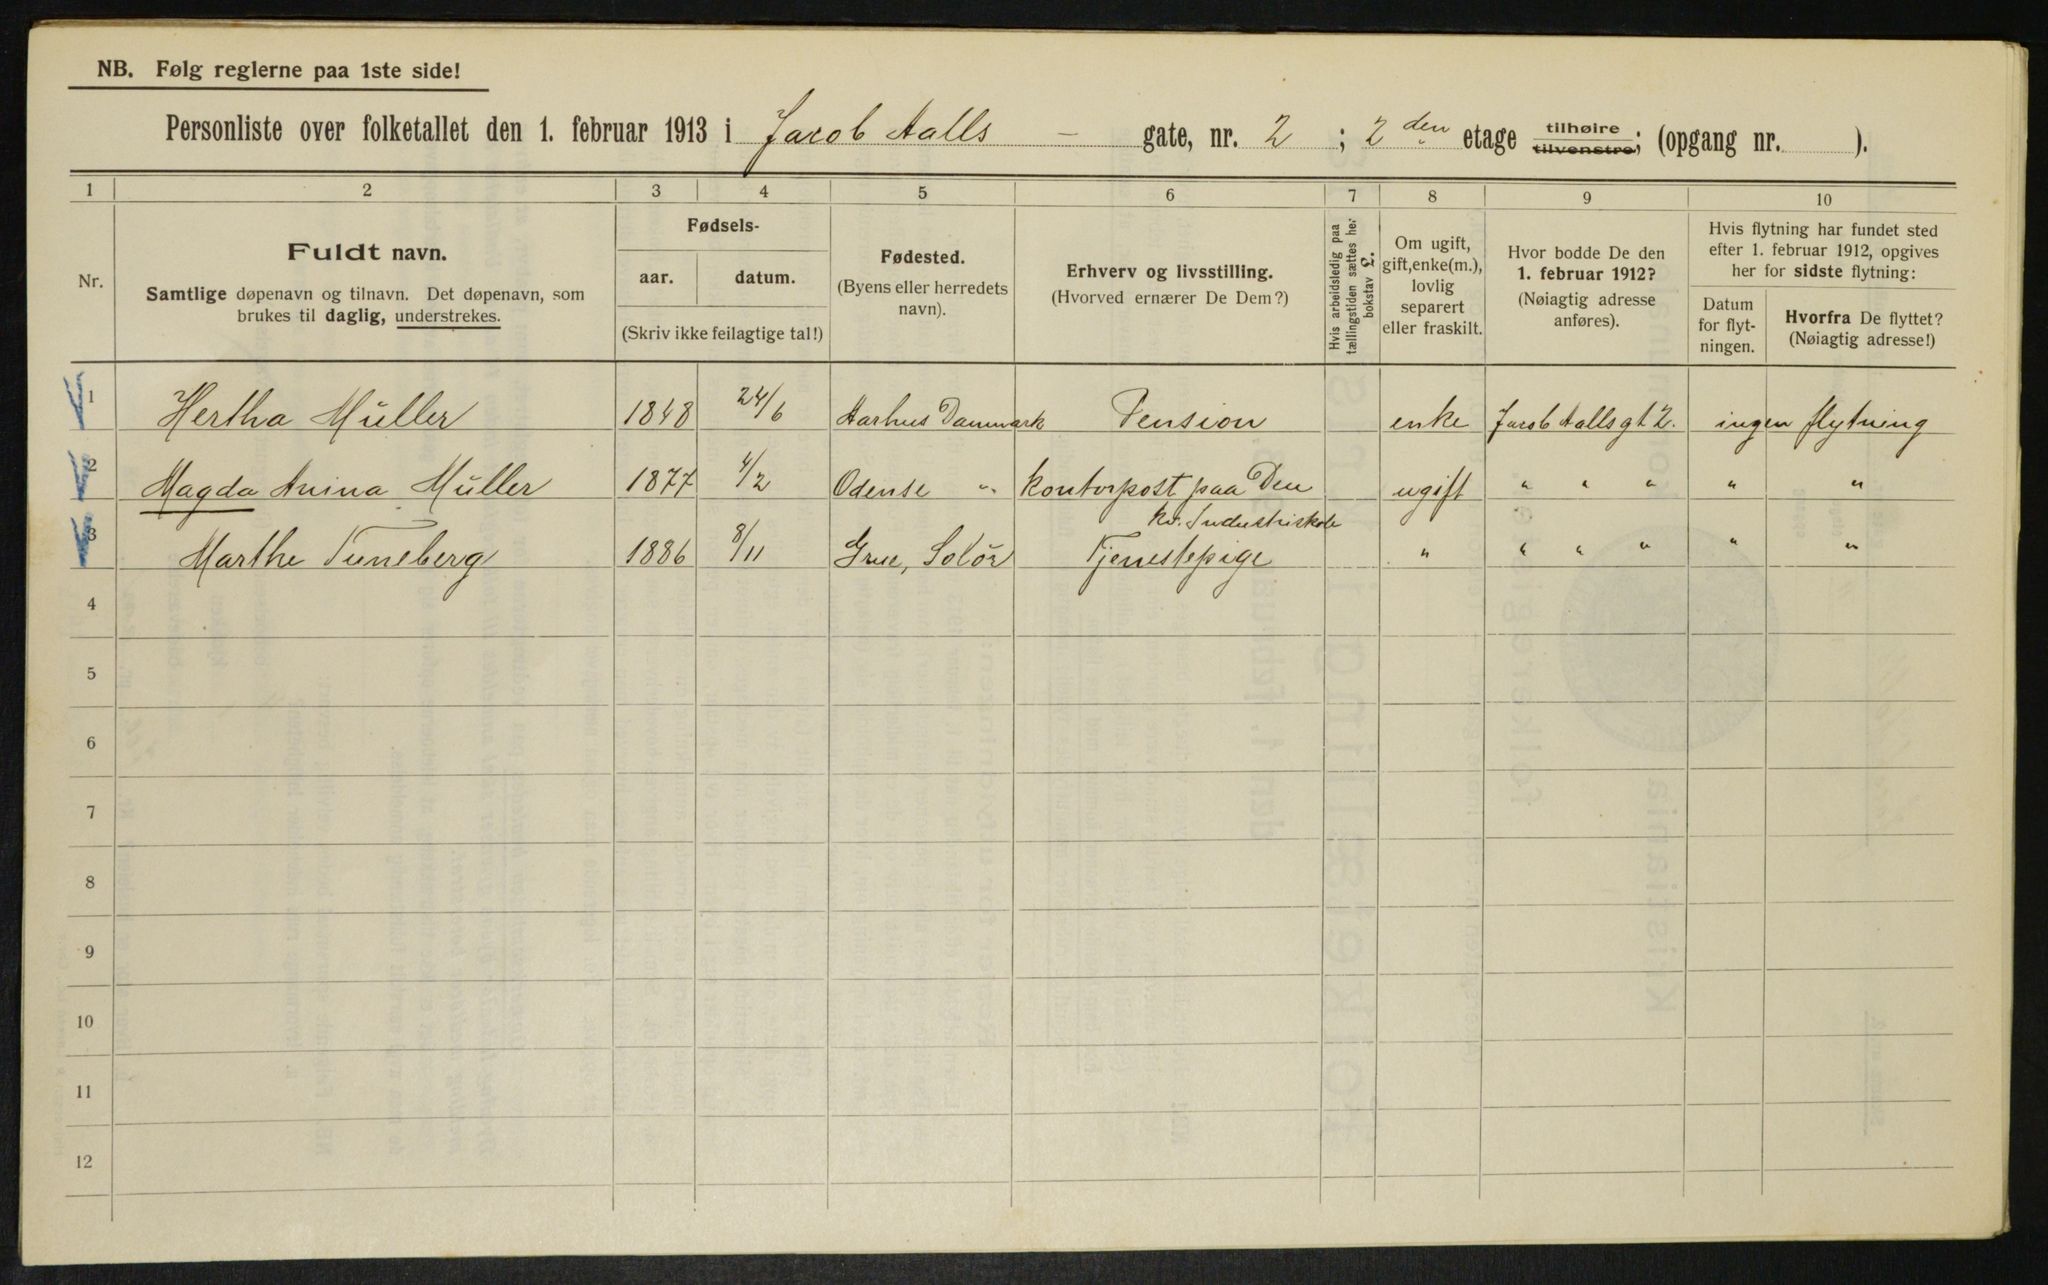 NB. Følg reglerne paa 1ste side!
Personliste over folketallet den 1. februar 1913 i Jacob Aalls - gate, nr. 2 ; 2 den etage tilhøire tilvenstre; (opgang nr. ).
1 2 3 4 5 6 7 8 9 10
Nr.
Fuldt navn.
Samtlige døpenavn og tilnavn. Det døpenavn, som
brukes til daglig, understrekes.
Fødsels-
aar. datum.
(Skriv ikke feilagtige tal!)
Fødested.
(Byens eller herredets
navn).
Erhverv og livsstilling.
(Hvorved ernærer De Dem?)
Hvis arbeidsledig paa
tællingstiden sættes her
bokstav L.
Om ugift,
gift, enke(m.),
lovlig
separert
eller fraskilt.
Hvor bodde De den
1. februar 1912?
(Nøiagtig adresse
anføres).
Hvis flytning har fundet sted
efter 1. februar 1912, opgives
her for sidste flytning:
Datum
for flyt-
ningen.
Hvorfra De flyttet?
(Nøiagtig adresse!)
1 Hertha Müller 1848 24/6 Aarhus Danmark Pension enke Jacob Aallsgt 2. ingen flytning
2 Magda Anina Müller 1877 4/2 Odense " kontorpost paa Den ugift " " " " "
kv. Industriskole
3 Marthe Tuneberg 1886 8/11 Grue, Solör Tjenestepige " " " " " "
4
5
6
7
8
9
10
11
12